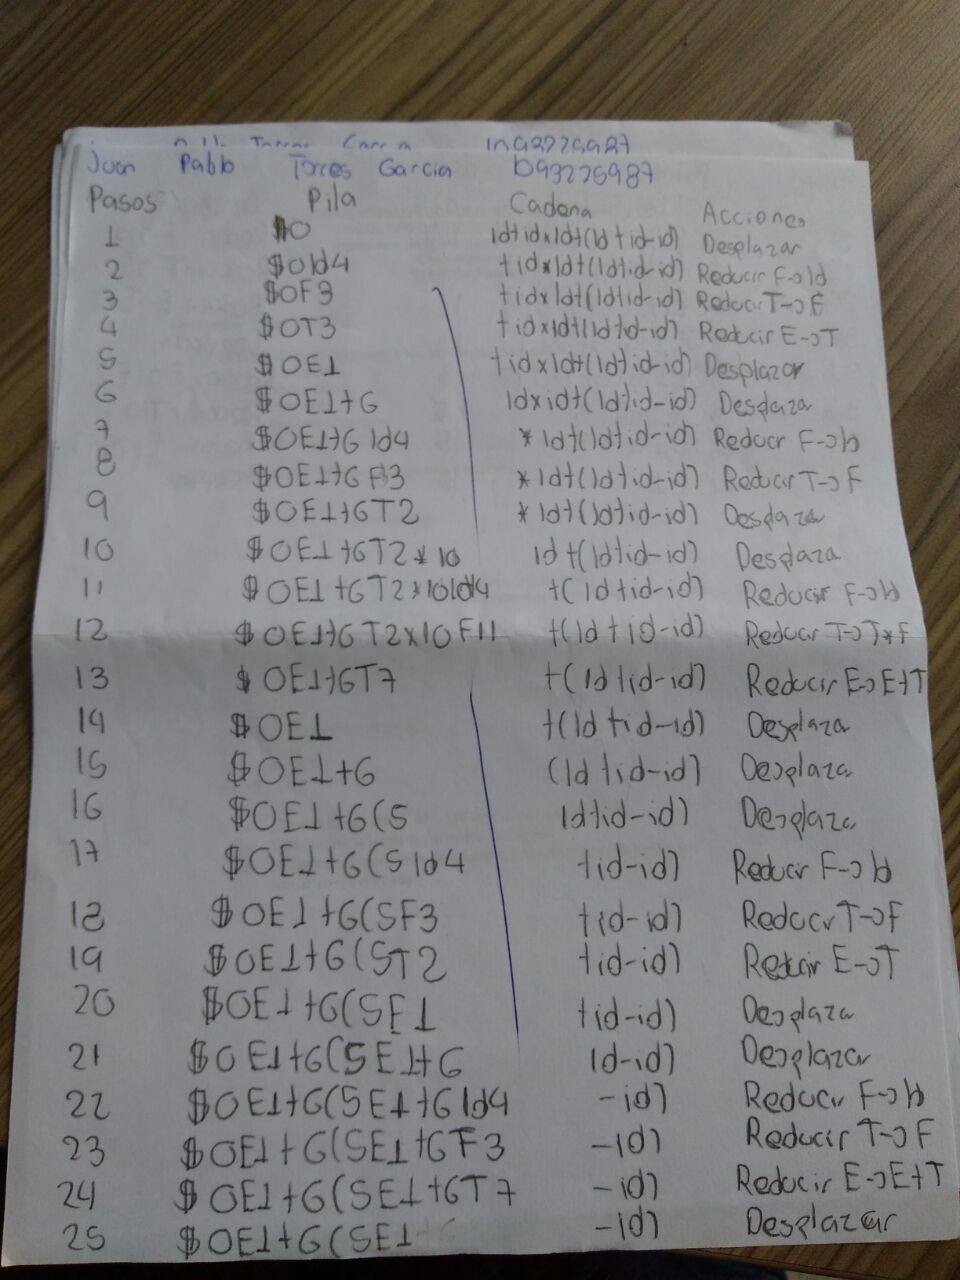 Juan Pablo Torres Garcia b93275987
Pasos Pila Cadena Acciones
1 $0 Id+id*Id+(Id+id-id) Desplazar
2 $0Id4 +id*Id+(Id+id-id) Reducir F->Id
3 $0F3 +id*Id+(Id+id-id) Reducir T->F
4 $0T3 +id*Id+(Id+id-id) Reducir E->T
5 $0E1 +id*Id+(Id+id-id) Desplazar
6 $0E1+6 Id*id+(Id+id-id) Desplaza
7 $0E1+6Id4 *Id+(Id+id-id) Reducir F->Id
8 $0E1+6F3 *Id+(Id+id-id) Reducir T->F
9 $0E1+6T2 *Id+(Id+id-id) Desplaza
10 $0E1+6T2*10 Id+(Id+id-id) Desplaza
11 $0E1+6T2*10Id4 +(Id+id-id) Reducir F->Id
12 $0E1+6T2*10F11 +(Id+id-id) Reducir T->T*F
13 $0E1+6T7 +(Id+id-id) Reducir E->E+T
14 $0E1 +(Id+id-id) Desplaza
15 $0E1+6 (Id+id-id) Desplaza
16 $0E1+6(5 Id+id-id) Desplaza
17 $0E1+6(5Id4 +id-id) Reducir F->Id
18 $0E1+6(5F3 +id-id) Reducir T->F
19 $0E1+6(5T2 +id-id) Reducir E->T
20 $0E1+6(5E1 +id-id) Desplaza
21 $0E1+6(5E1+6 Id-id) Desplazar
22 $0E1+6(5E1+6Id4 -id) Reducir F->Id
23 $0E1+6(5E1+6F3 -id) Reducir T->F
24 $0E1+6(5E1+6T7 -id) Reducir E->E+T
25 $0E1+6(5E1 -id) Desplazar